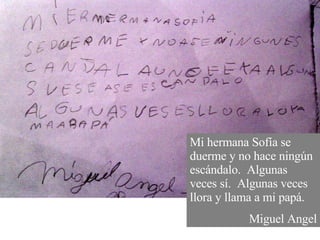 MI ERMERMANASOFIA
SEDUERME Y NOASE NINGUN ES
CANDAL AUNQEEKAALGUNA
S VESE ASE ESCANDALO
ALGUNAS VESES LLORA LLOYA
MAABAPA
Miguel Angel
Mi hermana Sofía se
duerme y no hace ningún
escándalo. Algunas
veces sí. Algunas veces
llora y llama a mi papá.
Miguel Angel